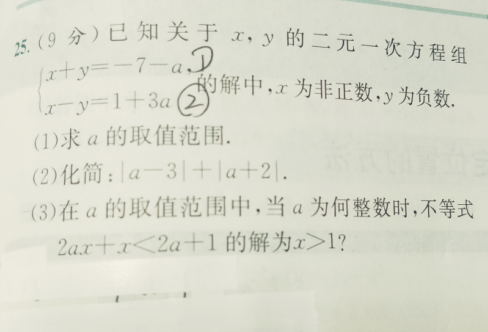 25.(9 分)已知关于 x, y 的二元一次方程组
x+y=-7-a, ①
x-y=1+3a ② 的解中,x 为非正数,y 为负数.
(1)求 a 的取值范围.
(2)化简:|a-3|+|a+2|.
(3)在 a 的取值范围中,当 a 为何整数时,不等式
2ax+x<2a+1 的解为x>1?